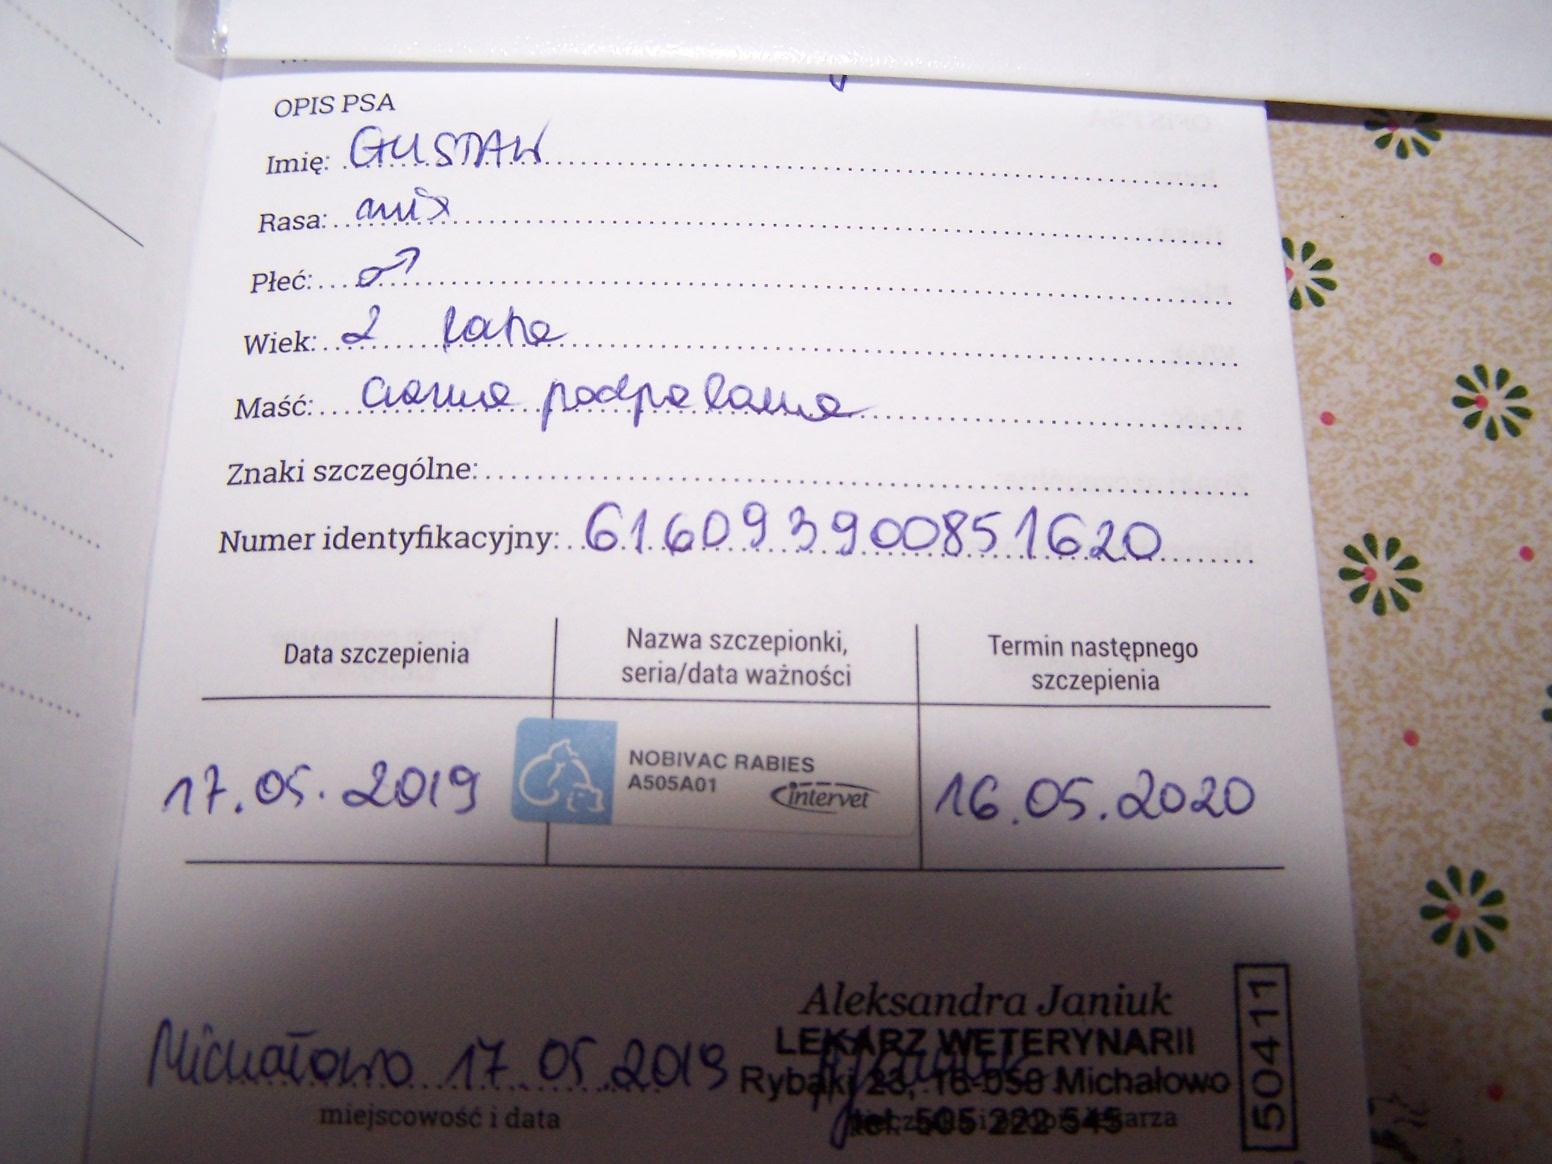 OPIS PSA
Imię: GUSTAW
Rasa: mix
Płeć: ♂
Wiek: 2 lata
Maść: czarna podpalana
Znaki szczególne:
Numer identyfikacyjny: 616093900851620
Data szczepienia
Nazwa szczepionki,
seria/data ważności
Termin następnego
szczepienia
17.05.2019
NOBIVAC RABIES
A505A01
Intervet
16.05.2020
Aleksandra Janiuk
LEKARZ WETERYNARII
Michałowo 17.05.2019
Rybaki 23, 16-050 Michałowo
miejscowość i data
tel. 505 222 545
50411